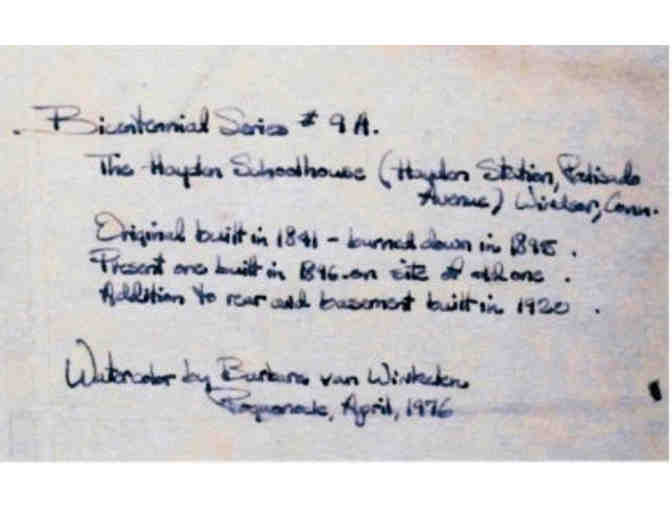 Bicentennial Series # 9A.
The Hayden Schoolhouse (Hayden Station, Palisado
Avenue) Windsor, Conn.
Original built in 1841 - burned down in
Present one built in 1896 on site of old one.
Addition to rear and basement built in 1920.
Watercolor by Barbara van Winkelen
Poquonock, April, 1976